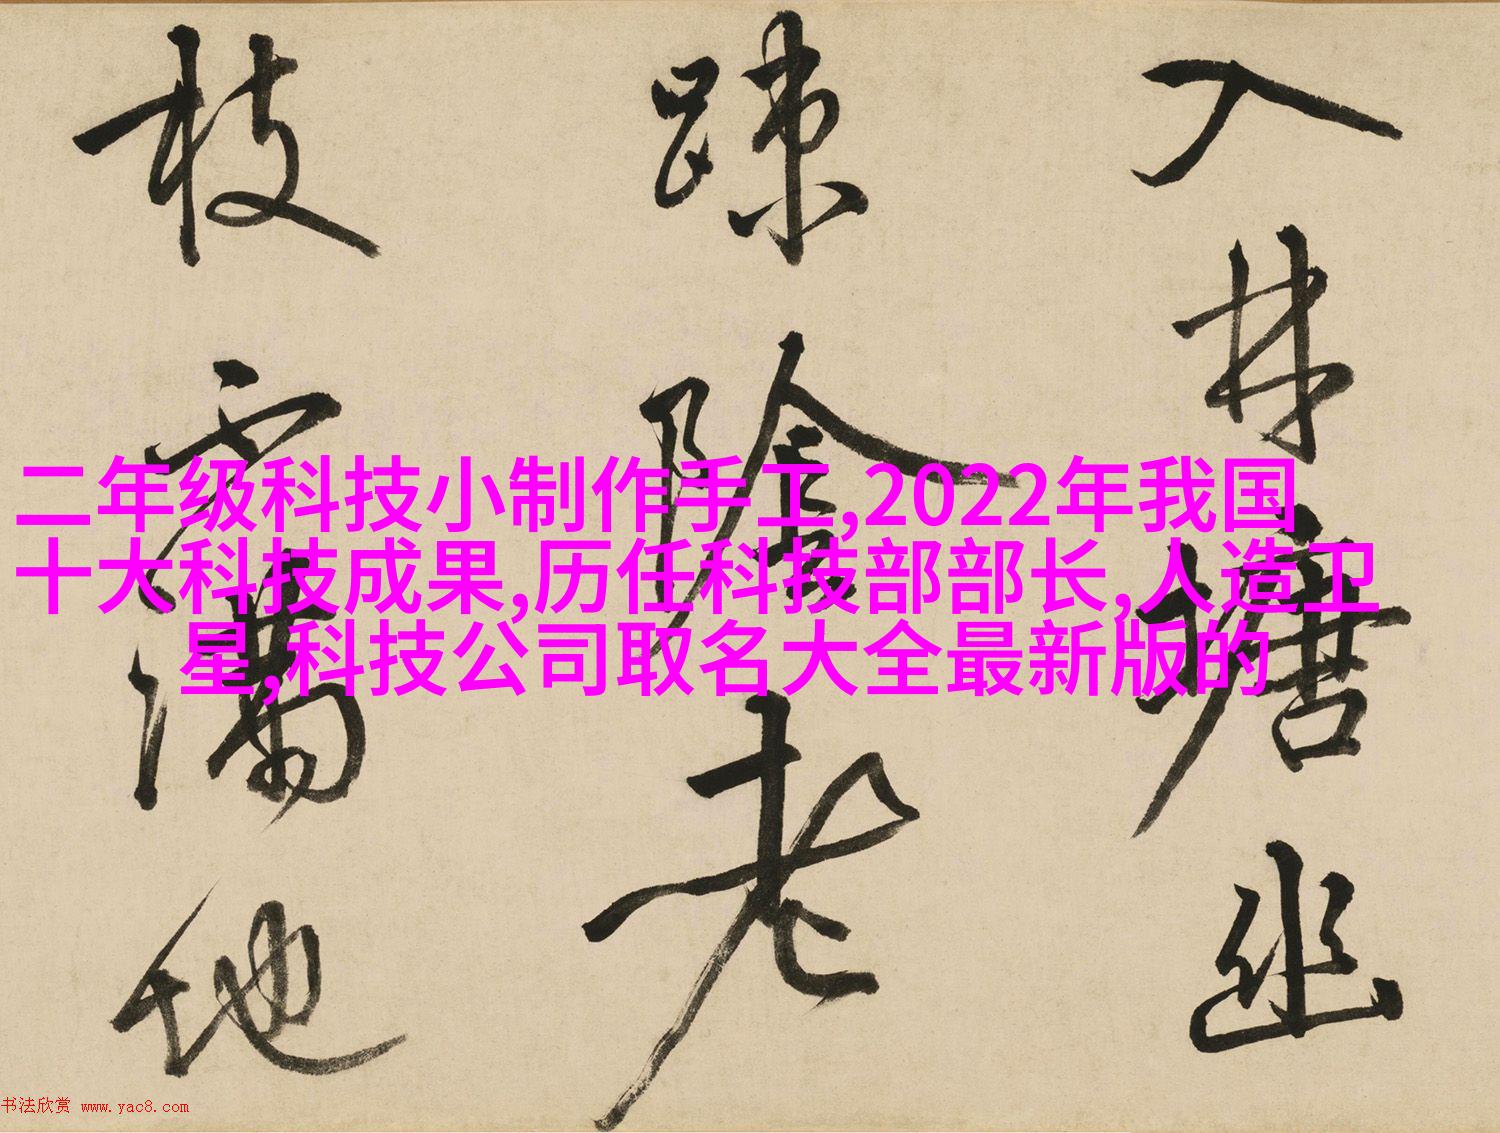 入林塘幽
踈陰老
枝霽滿地
二年级科技小制作手工,2022年我国
十大科技成果,历任科技部部长,人造卫
星,科技公司取名大全最新版的
书法欣赏 www.yac8.com